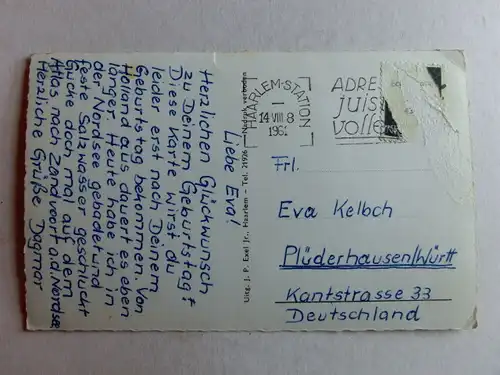 Liebe Eva!
Herzlichen Glückwunsch
zu Deinem Geburtstag!
Diese Karte wirst du
leider erst nach Deinem
Geburtstag bekommen. Von
Holland aus dauert es eben
länger. Heute habe ich in
der Nordsee gebadet und
feste Salzwasser geschluckt
Gucke doch mal auf dem
Atlas nach Zandvoort a.d. Nordsee
Herzliche Grüße Dagmar
Uitg. J. P. Exel Jr., Haarlem - Tel. 21926 Nadruk verboden
HAARLEM-STATION
14 VIII 8
1961
ADRE
juis
volle
Frl.
Eva Kelbch
Plüderhausen/Württ
Kantstrasse 33
Deutschland